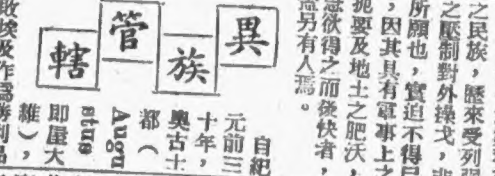 之民族,歷來受列强
之壓制對外操戈,非
所願也,實迫不得已
,因其具有軍事上之
扼要及地土之肥沃,
意欲得之而後快者,
盖另有人焉。
異族管轄
自紀
元前三
十年,
奥古士
都(
Augu
stus
即屋大
維),
敗埃及作爲勝利